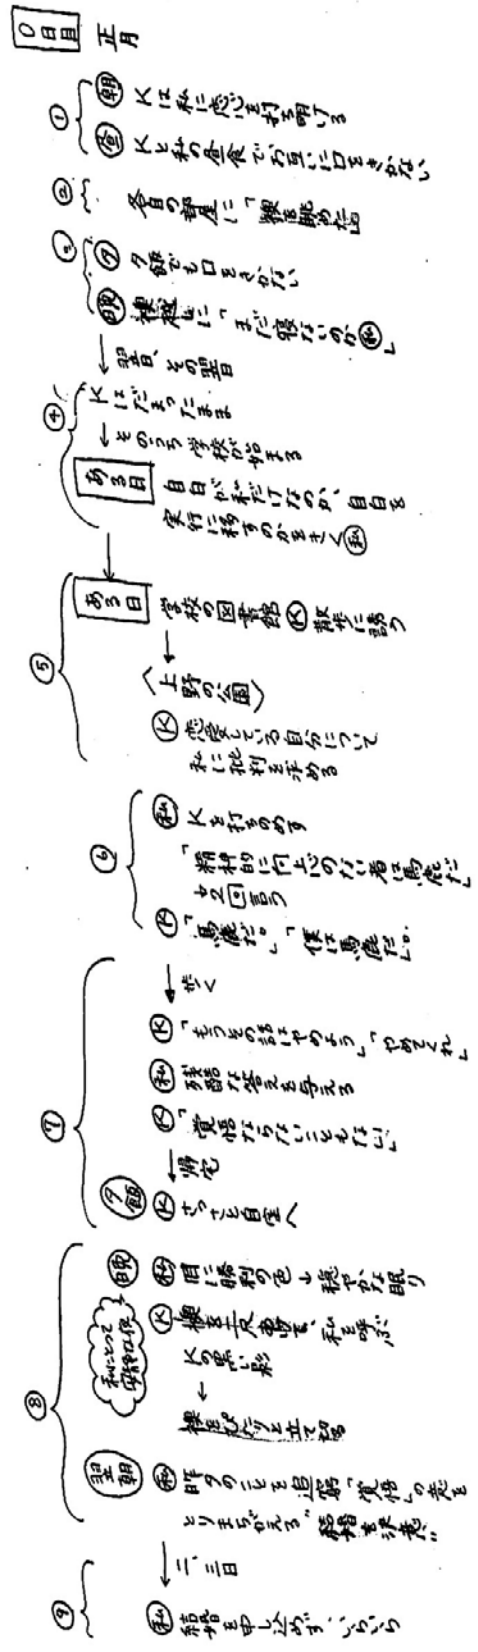 0日目 正月
① 朝 Kは私に恋を打ち明ける
昼 Kと私の昼食でお互いに口をきかない
② 各自の部屋に「襖を眺めた」
③ 夕 夕飯でも口をきかない
晩 襖越しに「まだ寝ないのか 私」
↓ 翌日、その翌日
④ Kはだまったまま
↓ そのうち学校が始まる
ある日 自白が私だけなのか、自白を
実行に移すのかをきく 私
↓
⑤ ある日 学校の図書館 K 散歩に誘う
↓
〈上野の公園〉
K 恋愛している自分について
私に批判を求める
⑥ 私 Kを打ちのめす
「精神的に向上心のない者は馬鹿だ」
と2回言う
K 「馬鹿だ。」「僕は馬鹿だ。」
⑦ ↓ 歩く
K 「もうその話はやめよう」「やめてくれ」
私 残酷な答えを与える
K 「覚悟ならないこともない」
↓ 帰宅
夕飯 K さっさと自室へ
⑧ 晩 私 目に勝利の色 穏やかな眠り
私にとって
K 襖を二尺あけて、私を呼ぶ
Kの黒い影
↓
襖をぴたりと立て切る
翌朝 私 昨夕のことを追窮「覚悟」の意を
とりまちがえる "結婚を決意"
↓ 二、三日
⑨ 私 結婚を申し込めず、いらいら